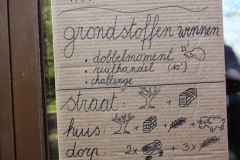 grondstoffen winnen
• dobbelmoment
• ruilhandel (10')
• challenge
straat: +
huis: + + +
dorp: 2x + 3x